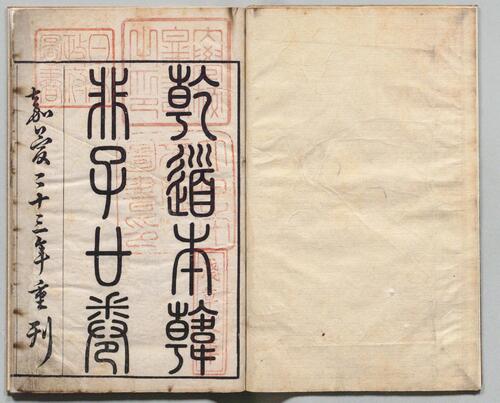 乾道本韓
非子廿卷
嘉慶二十三年重刊